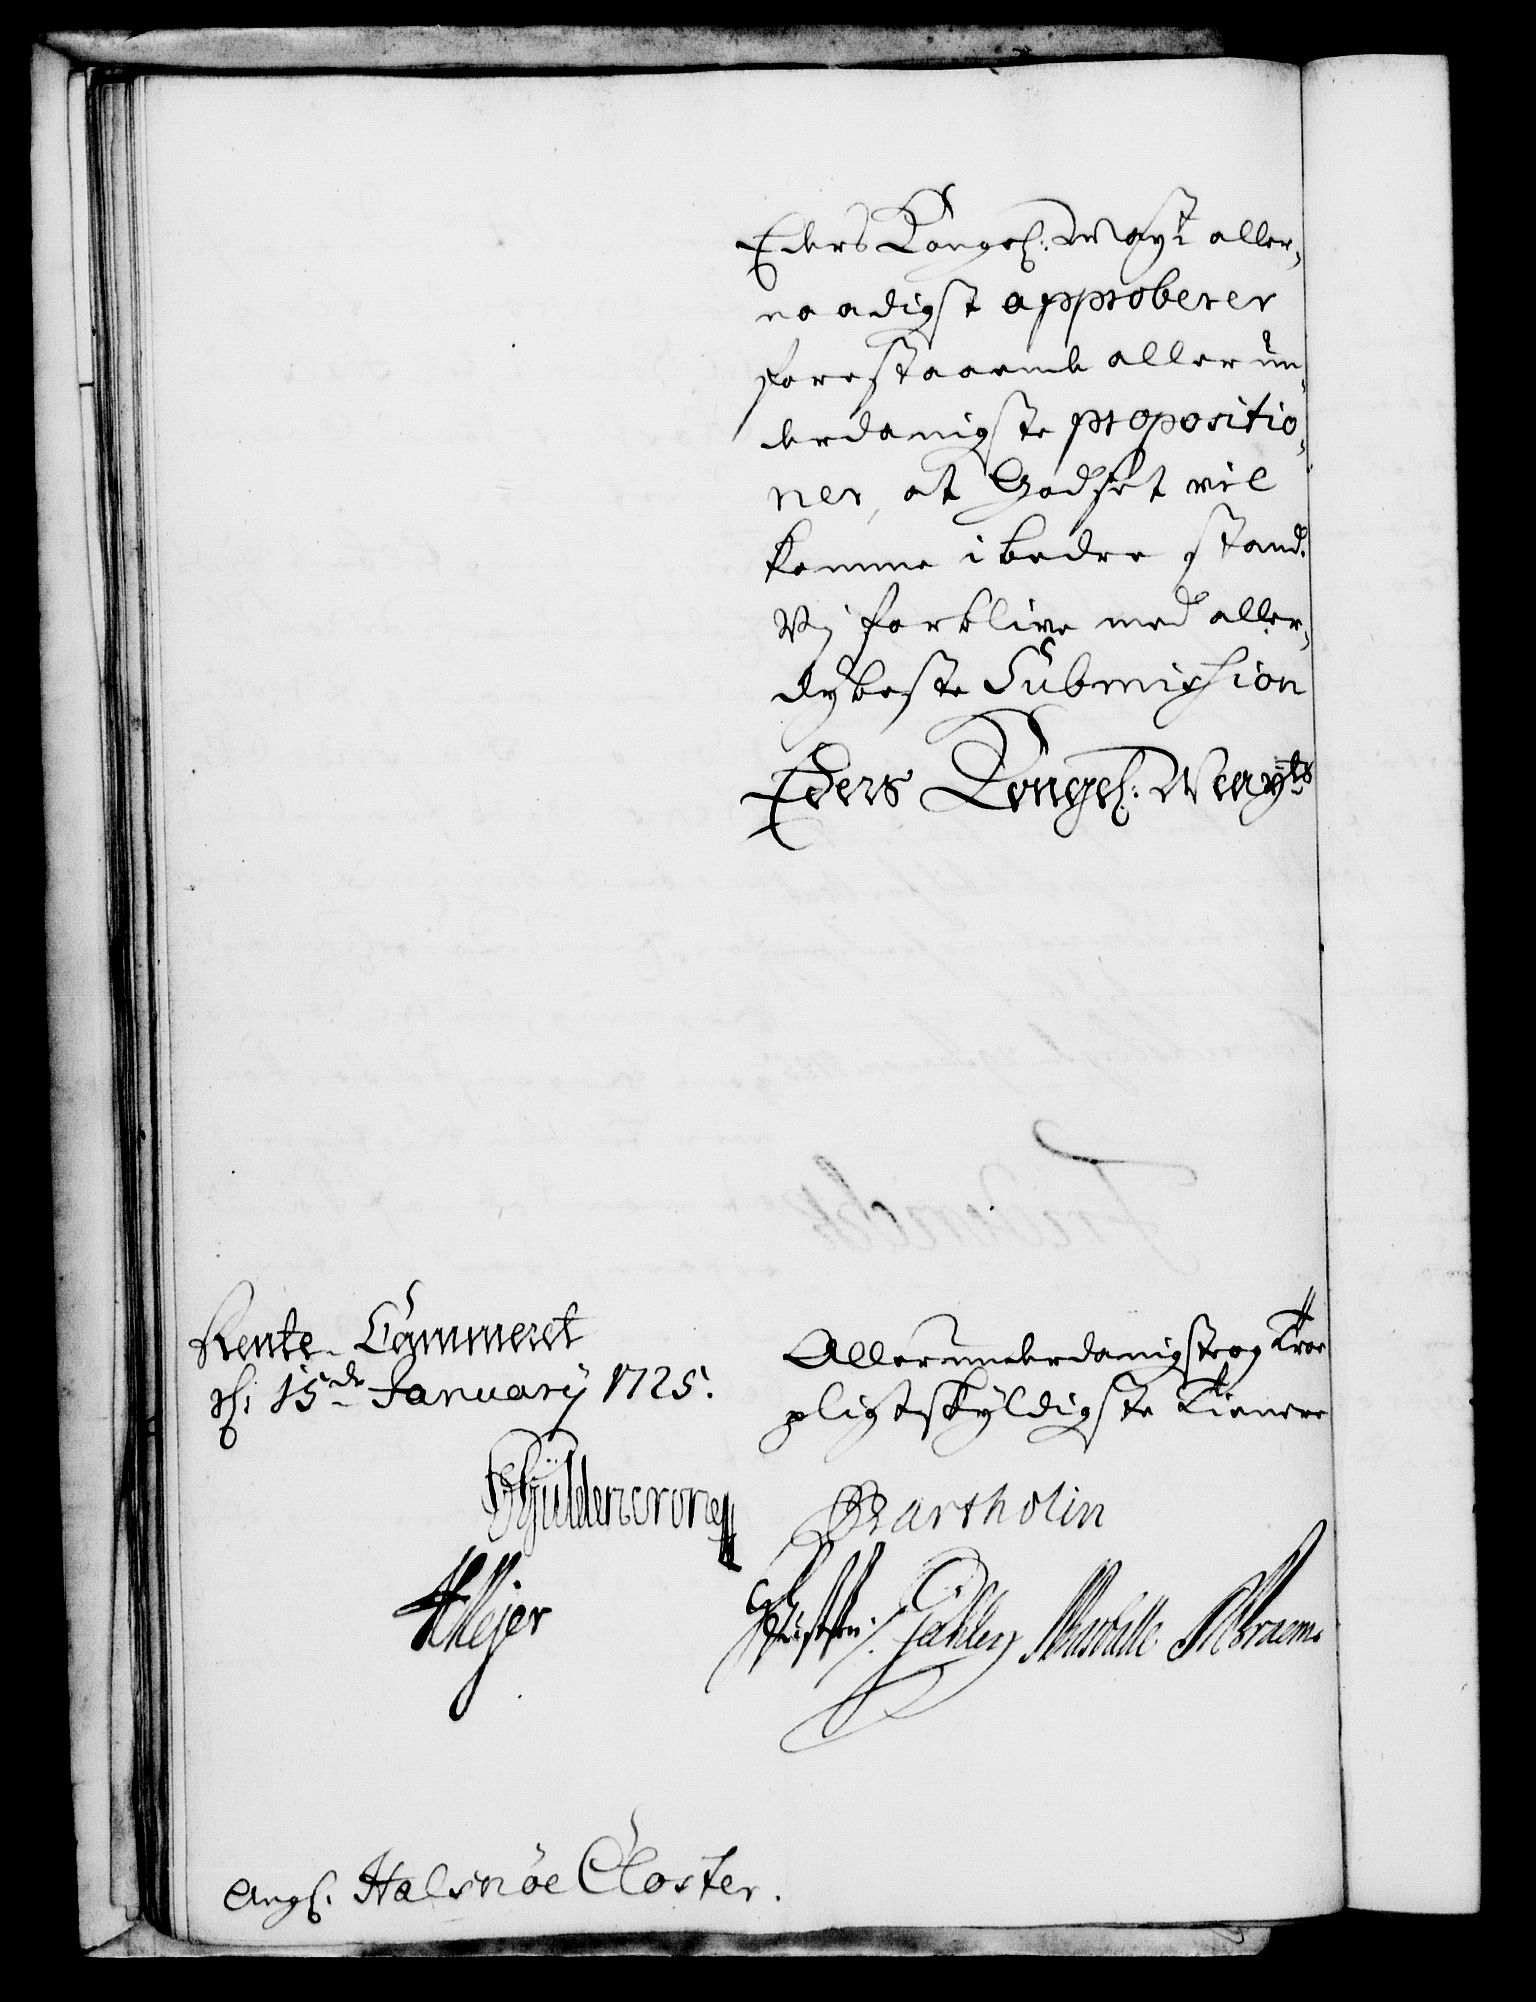 Eders Kongel: Mayt aller-
naadigst approberer
forestaaende allerun-
derdanigste propositio-
ner, at Godset vil
komme i bedre stand.
Vj forblive med aller-
dybeste Submission
Eders Kongel: Mayts
Rente-Cammeret
d: 15de January 1725.
Allerunderdanigste og Troe
pligtskyldigste Tienere
Güldencrone
Bartholin
Mejer
Angl. Halsnöe Closter.